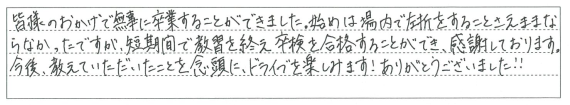 皆様のおかげで無事に卒業することができました。始めは場内で左折をすることさえままな
らなかったですが、短期間で教習を終え卒検を合格することができ、感謝しております。
今後、教えていただいたことを念頭に、ドライブを楽しみます！ありがとうございました!!